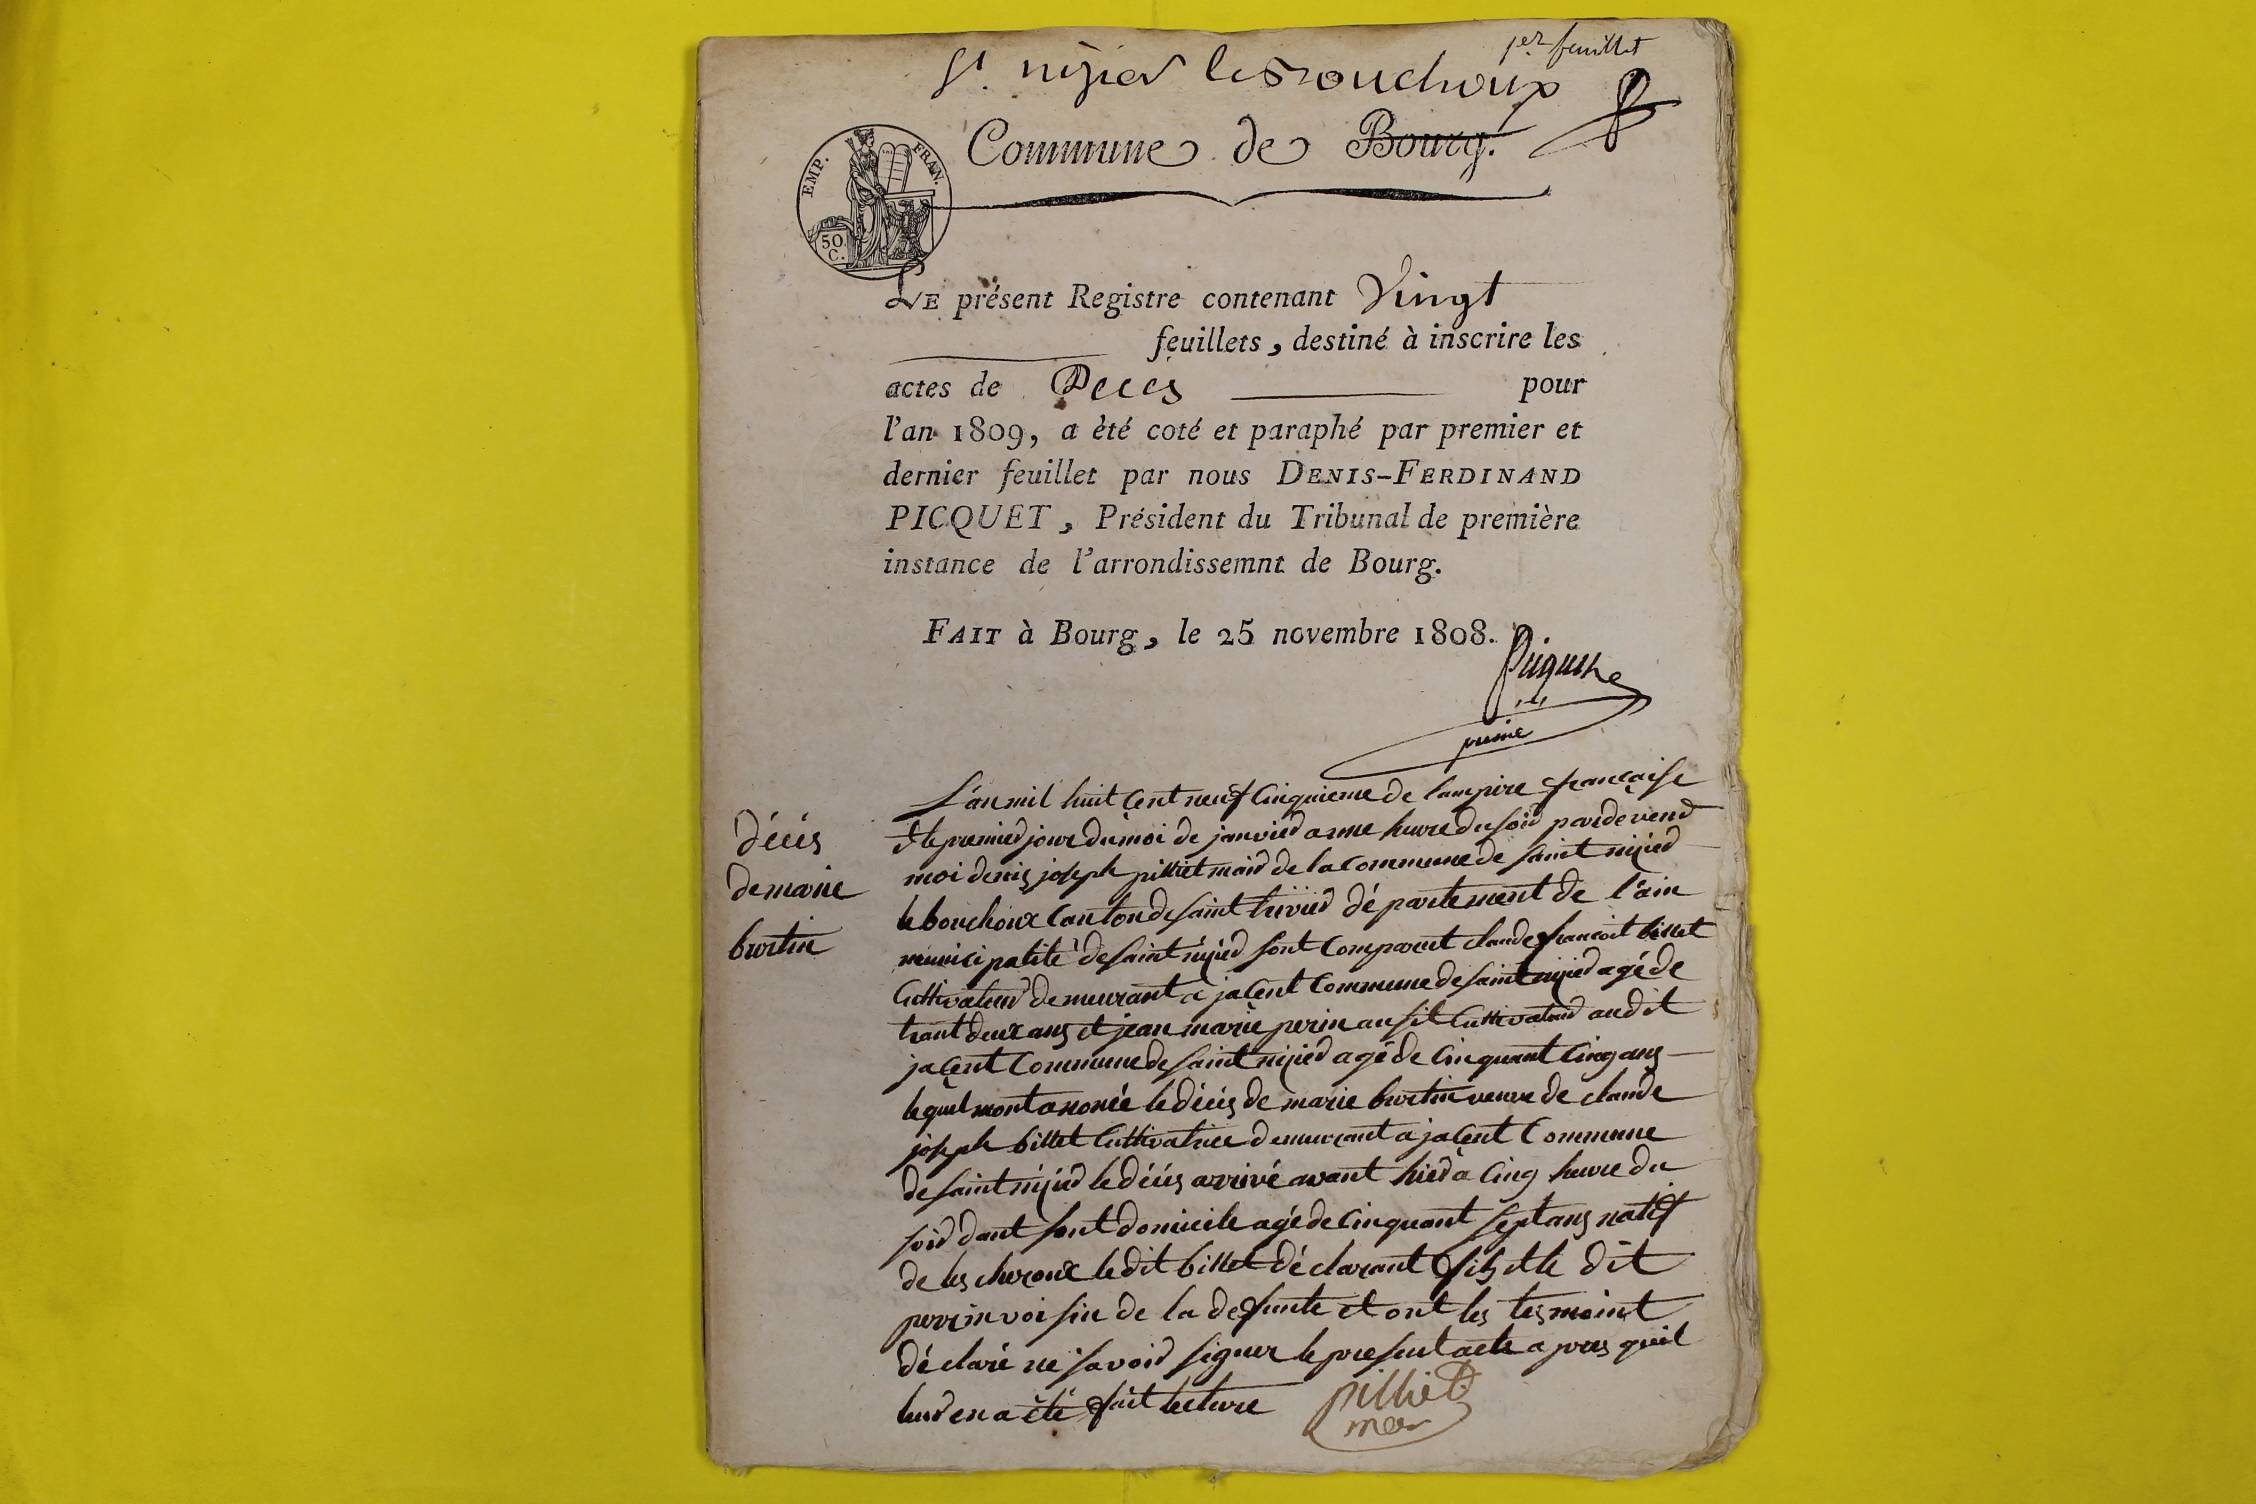 1er feuillet
St. nizier lesbouchoux
Commune de Bourg.
EMP. FRAN.
50 C.
LE présent Registre contenant Vingt
feuillets, destiné à inscrire les
actes de Decès pour
l'an 1809, a èté coté et paraphé par premier et
dernier feuillet par nous DENIS-FERDINAND
PICQUET, Président du Tribunal de première
instance de l'arrondissemnt de Bourg.
FAIT à Bourg, le 25 novembre 1808.
Picquet
décès
de marie
burtin
L'an mil huit Cent neuf Cinquieme de lampire française
& le premier jour du moi de janvier a une heure du soir pardevend
moi denis joseph pilliet mair de la Commune de saint nizier
le bouchoux Canton de saint trivier département de l'ain
municipalité de saint nizier sont Comparut claude francoit billet
Cultivateur demeurant a jacent Commune de saint nizier agé de
trant deux ans et jean marie perin ausit Cultivateur audit
jacent Commune de saint nizier agé de Cinquant Cinq ans
lequel mont anoncé le décès de marie burtin veuve de claude
joseph billet Cultivatrice demeurant a jacent Commune
de saint nizier le décès arrivé avant hier a Cinq heure du
soir dant sont domicile agé de Cinquant sept ans natif
de les cheroux le dit billet déclarant fils et le dit
perrin voisin de la defunte et ont les tesmoint
déclaré ne savoir signer le present acte apres quil
leur en a été fait lecture
pilliet
mer